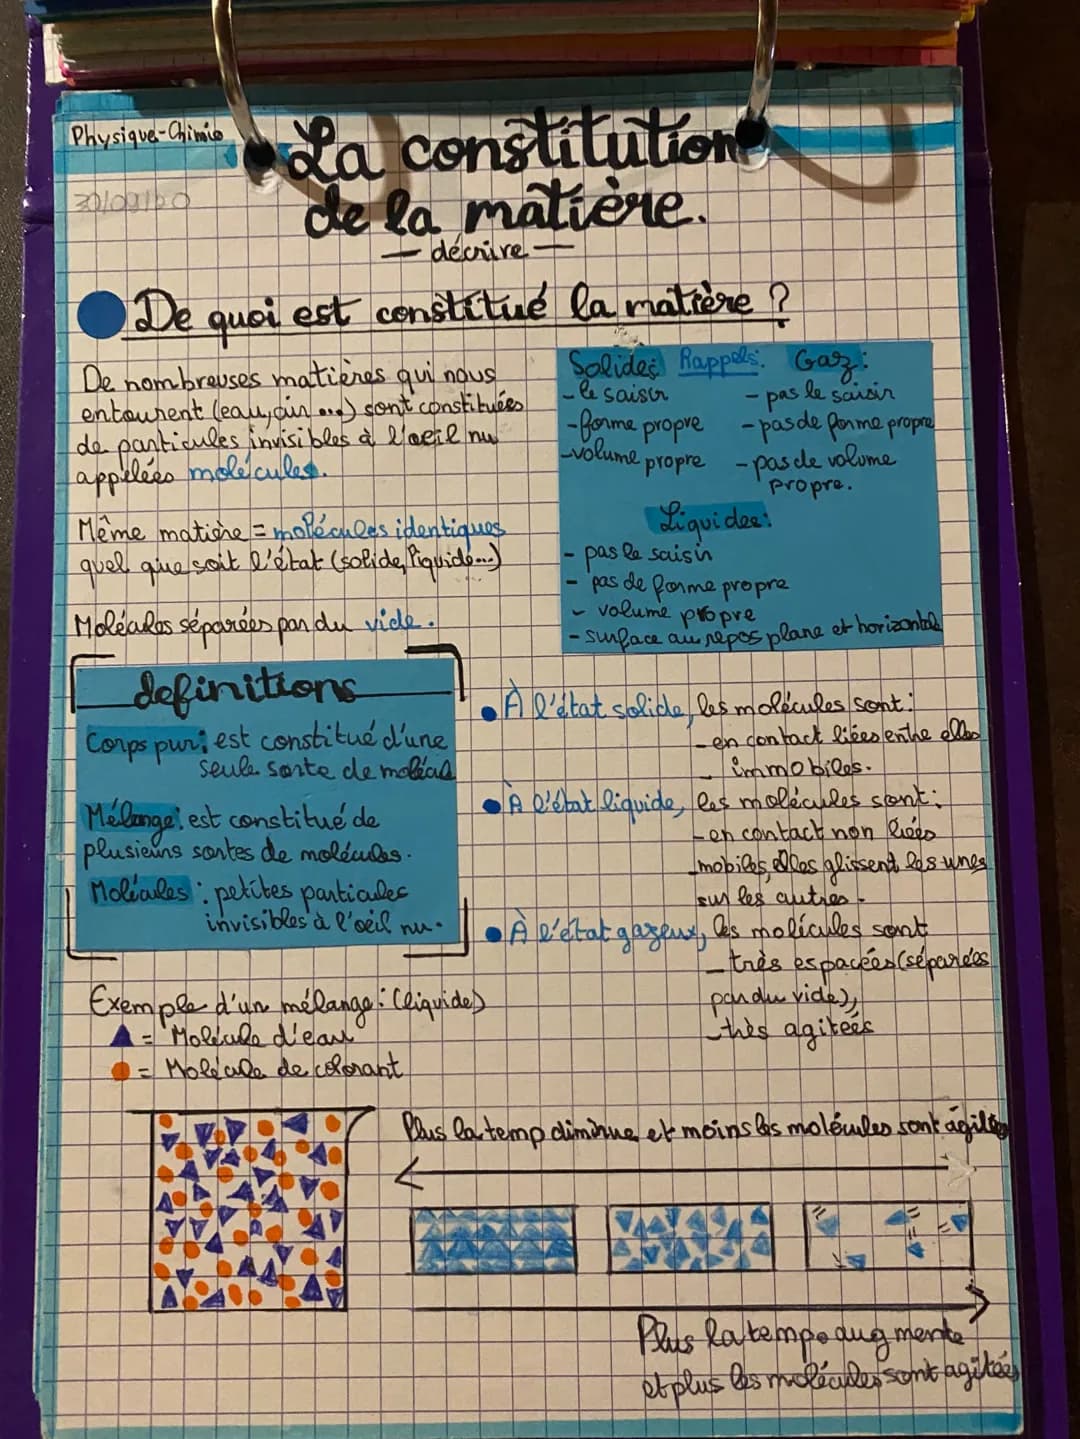 Physique-Chimie
30/09/20
La constitution
de la matière.
— décrire —
De quoi est constitué la matière ?
De nombreuses matières qui nous
entourent (eau, air ...) sont constituées
de particules invisibles à l'oeil nu
appelées molécules.
Même matière = molécules identiques
quel que soit l'état (solide, liquide...)
Molécules séparées par du vide.
Rappels:
Solides:
- le saisir
- forme propre
- volume propre
Gaz:
- pas le saisir
- pas de forme propre
- pas de volume
propre.
Liquides:
- pas le saisir
- pas de forme propre
- volume propre
- surface au repos plane et horizontale
definitions
Corps pur: est constitué d'une
seule sorte de molécul
Mélange: est constitué de
plusieurs sortes de molécules.
Molécules : petites particules
invisibles à l'oeil nu.
• À l'état solide, les molécules sont:
- en contact liées entre elles
- immobiles.
• À l'état liquide, les molécules sont:
- en contact non liées
- mobiles, elles glissent les unes
sur les autres.
• À l'état gazeux, les molécules sont
- très espacées (séparées
par du vide),
- très agitées
Exemple d'un mélange: (liquide)
= Molécule d'eau
= Molécule de colorant
Plus la temp diminue et moins les molécules sont agitées
Plus la temp augmente
et plus les molécules sont agitées